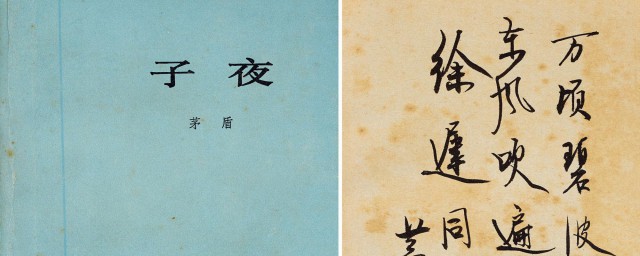 子夜
茅盾
万顷碧波
东风吹遍
徐迟同